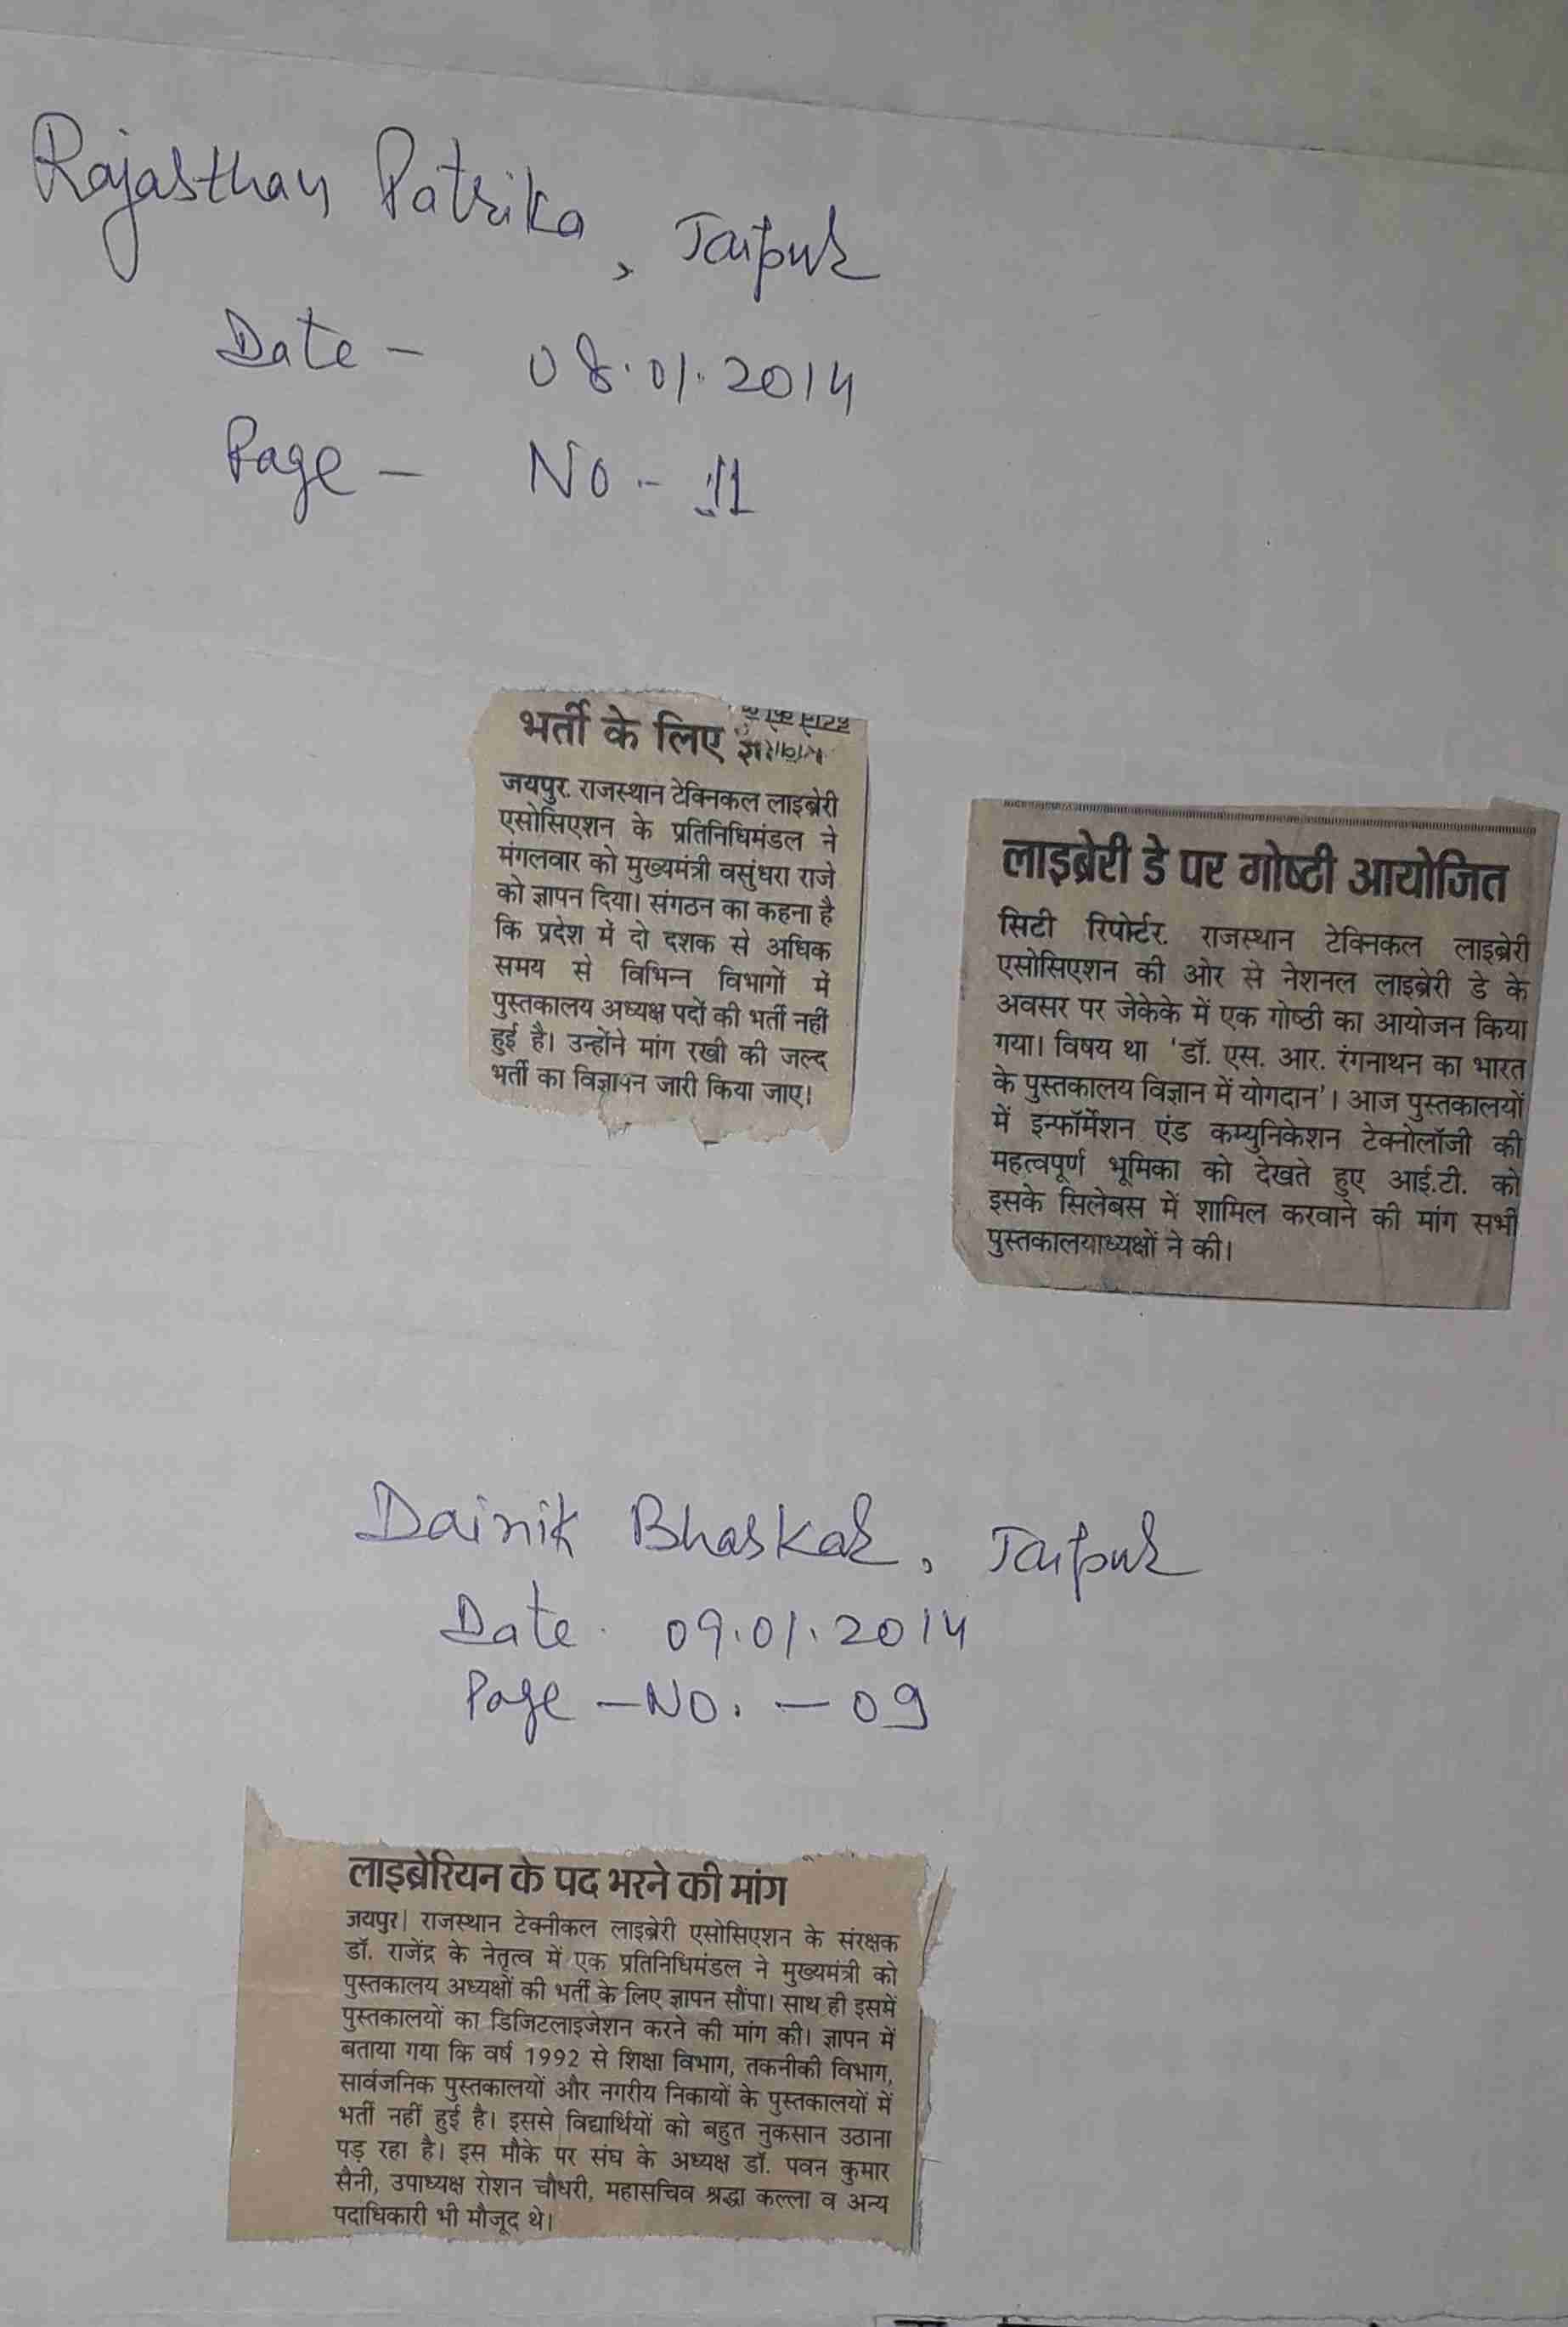 Rajasthan Patrika, Jaipur
Date - 08.01.2014
Page - No - 11
भर्ती के लिए
जयपुर. राजस्थान टेक्निकल लाइब्रेरी
एसोसिएशन के प्रतिनिधिमंडल ने
मंगलवार को मुख्यमंत्री वसुंधरा राजे
को ज्ञापन दिया। संगठन का कहना है
कि प्रदेश में दो दशक से अधिक
समय से विभिन्न विभागों में
पुस्तकालय अध्यक्ष पदों की भर्ती नहीं
हुई है। उन्होंने मांग रखी की जल्द
भर्ती का विज्ञापन जारी किया जाए।
लाइब्रेरी डे पर गोष्ठी आयोजित
सिटी रिपोर्टर. राजस्थान टेक्निकल लाइब्रेरी
एसोसिएशन की ओर से नेशनल लाइब्रेरी डे के
अवसर पर जेकेके में एक गोष्ठी का आयोजन किया
गया। विषय था 'डॉ. एस. आर. रंगनाथन का भारत
के पुस्तकालय विज्ञान में योगदान'। आज पुस्तकालयों
में इन्फॉर्मेशन एंड कम्युनिकेशन टेक्नोलॉजी की
महत्वपूर्ण भूमिका को देखते हुए आई.टी. को
इसके सिलेबस में शामिल करवाने की मांग सभी
पुस्तकालयाध्यक्षों ने की।
Dainik Bhaskar, Jaipur
Date. 09.01.2014
Page - No. - 09
लाइब्रेरियन के पद भरने की मांग
जयपुर| राजस्थान टेक्नीकल लाइब्रेरी एसोसिएशन के संरक्षक
डॉ. राजेंद्र के नेतृत्व में एक प्रतिनिधिमंडल ने मुख्यमंत्री को
पुस्तकालय अध्यक्षों की भर्ती के लिए ज्ञापन सौंपा। साथ ही इसमें
पुस्तकालयों का डिजिटलाइजेशन करने की मांग की। ज्ञापन में
बताया गया कि वर्ष 1992 से शिक्षा विभाग, तकनीकी विभाग,
सार्वजनिक पुस्तकालयों और नगरीय निकायों के पुस्तकालयों में
भर्ती नहीं हुई है। इससे विद्यार्थियों को बहुत नुकसान उठाना
पड़ रहा है। इस मौके पर संघ के अध्यक्ष डॉ. पवन कुमार
सैनी, उपाध्यक्ष रोशन चौधरी, महासचिव श्रद्धा कल्ला व अन्य
पदाधिकारी भी मौजूद थे।